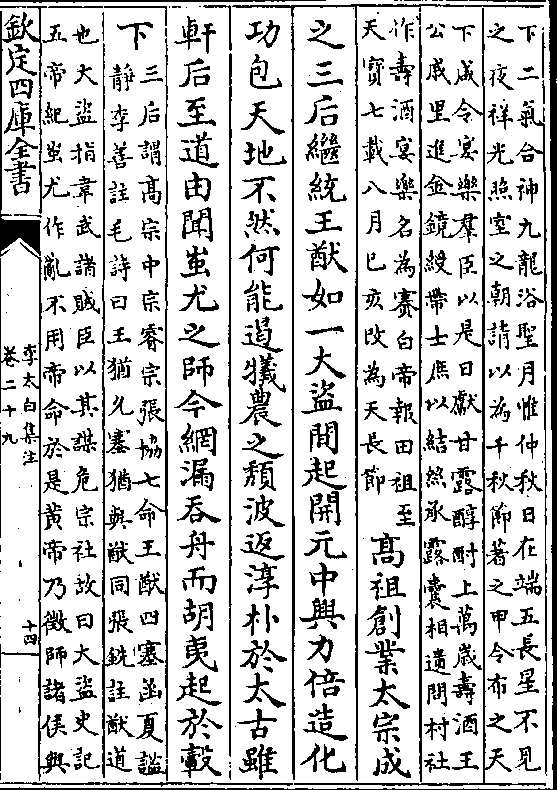 下二氣合神九龍浴聖月惟仲秋日在端五長星不見
之夜祥光照室之朝請以為千秋節著之甲令布之天
下咸令宴樂羣臣以是日獻甘露醇酎上萬歲壽酒王
公戚里進金鏡綬帶士庶以結絲承露囊相遺問村社
作壽酒宴樂名為賽白帝報田祖至
天寳七載八月已亥改為天長節
髙祖創業太宗成
之三后繼統王猷如一大盜間起開元中興力倍造化
功包天地不然何能遏犧農之頽波返淳朴於太古雖
軒后至道由聞蚩尤之師今網漏吞舟而胡夷起於轂
下
三后謂髙宗中宗睿宗張協七命王猷四塞函夏謐
静李善註毛詩曰王猶允塞猶與猷同張銑註猷道
也大盜指韋武諸賊臣以其謀危宗社故曰大盜史記
五帝紀蚩尤作亂不用帝命於是黄帝乃徴師諸侯與
欽定四庫全書
李太白集注
卷二十九
十四